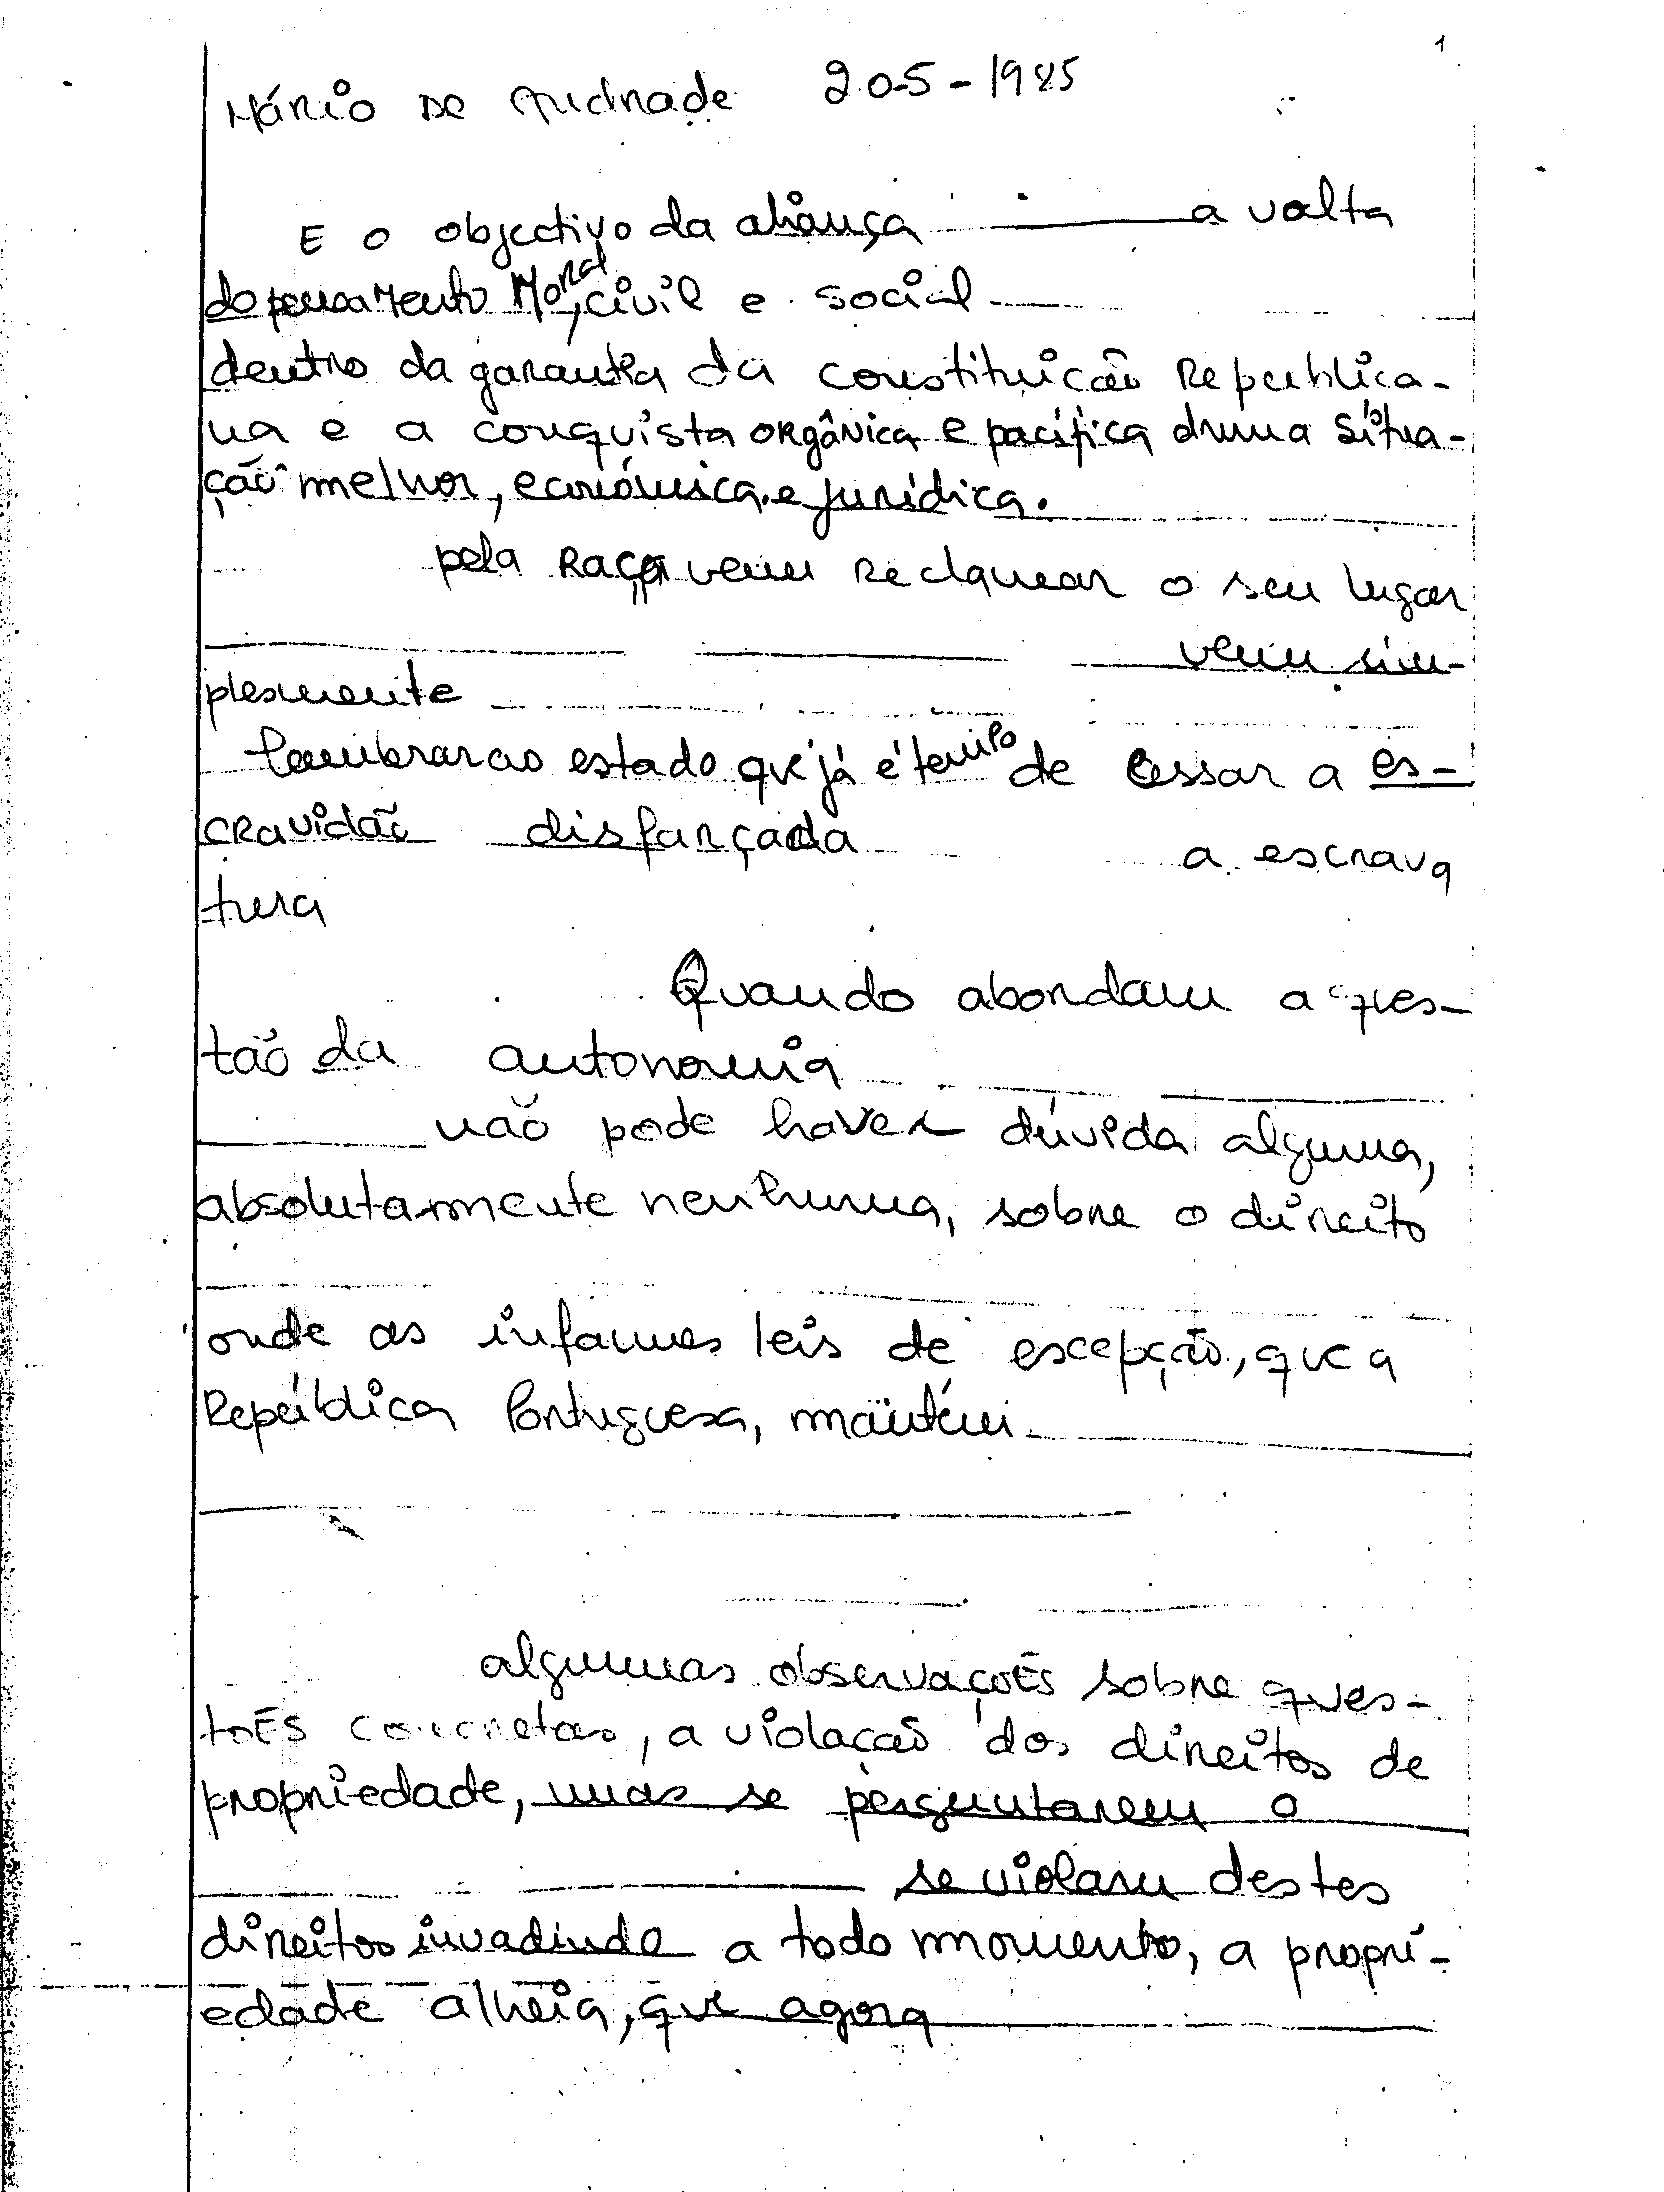 1
Mário de Andrade 20-5-1985
E o objectivo da aliança a volta
do pensamento Moral, civil e social
dentro da garantia da constituicão Republica-
na e a conquista orgânica e pacífica duma situa-
ção melhor, económica e jurídica.
pela Raça, vem Reclamar o seu lugar
vem sim-
plesmente
lembrar ao estado que já é tempo de cessar a es-
cravidão disfarçada a escrava
tura
Quando abordam a ques-
tão da autonomia
não pode haver dúvida alguma,
absolutamente nenhuma, sobre o direito
onde as infames leis de escepção, que a
República Portuguesa, mantém
algumas observações sobre ques-
tões concretas, a violacão dos direitos de
propriedade, mas se perguntarem o
se violam destes
direitos invadindo a todo momento, a propri-
edade alheia, que agora